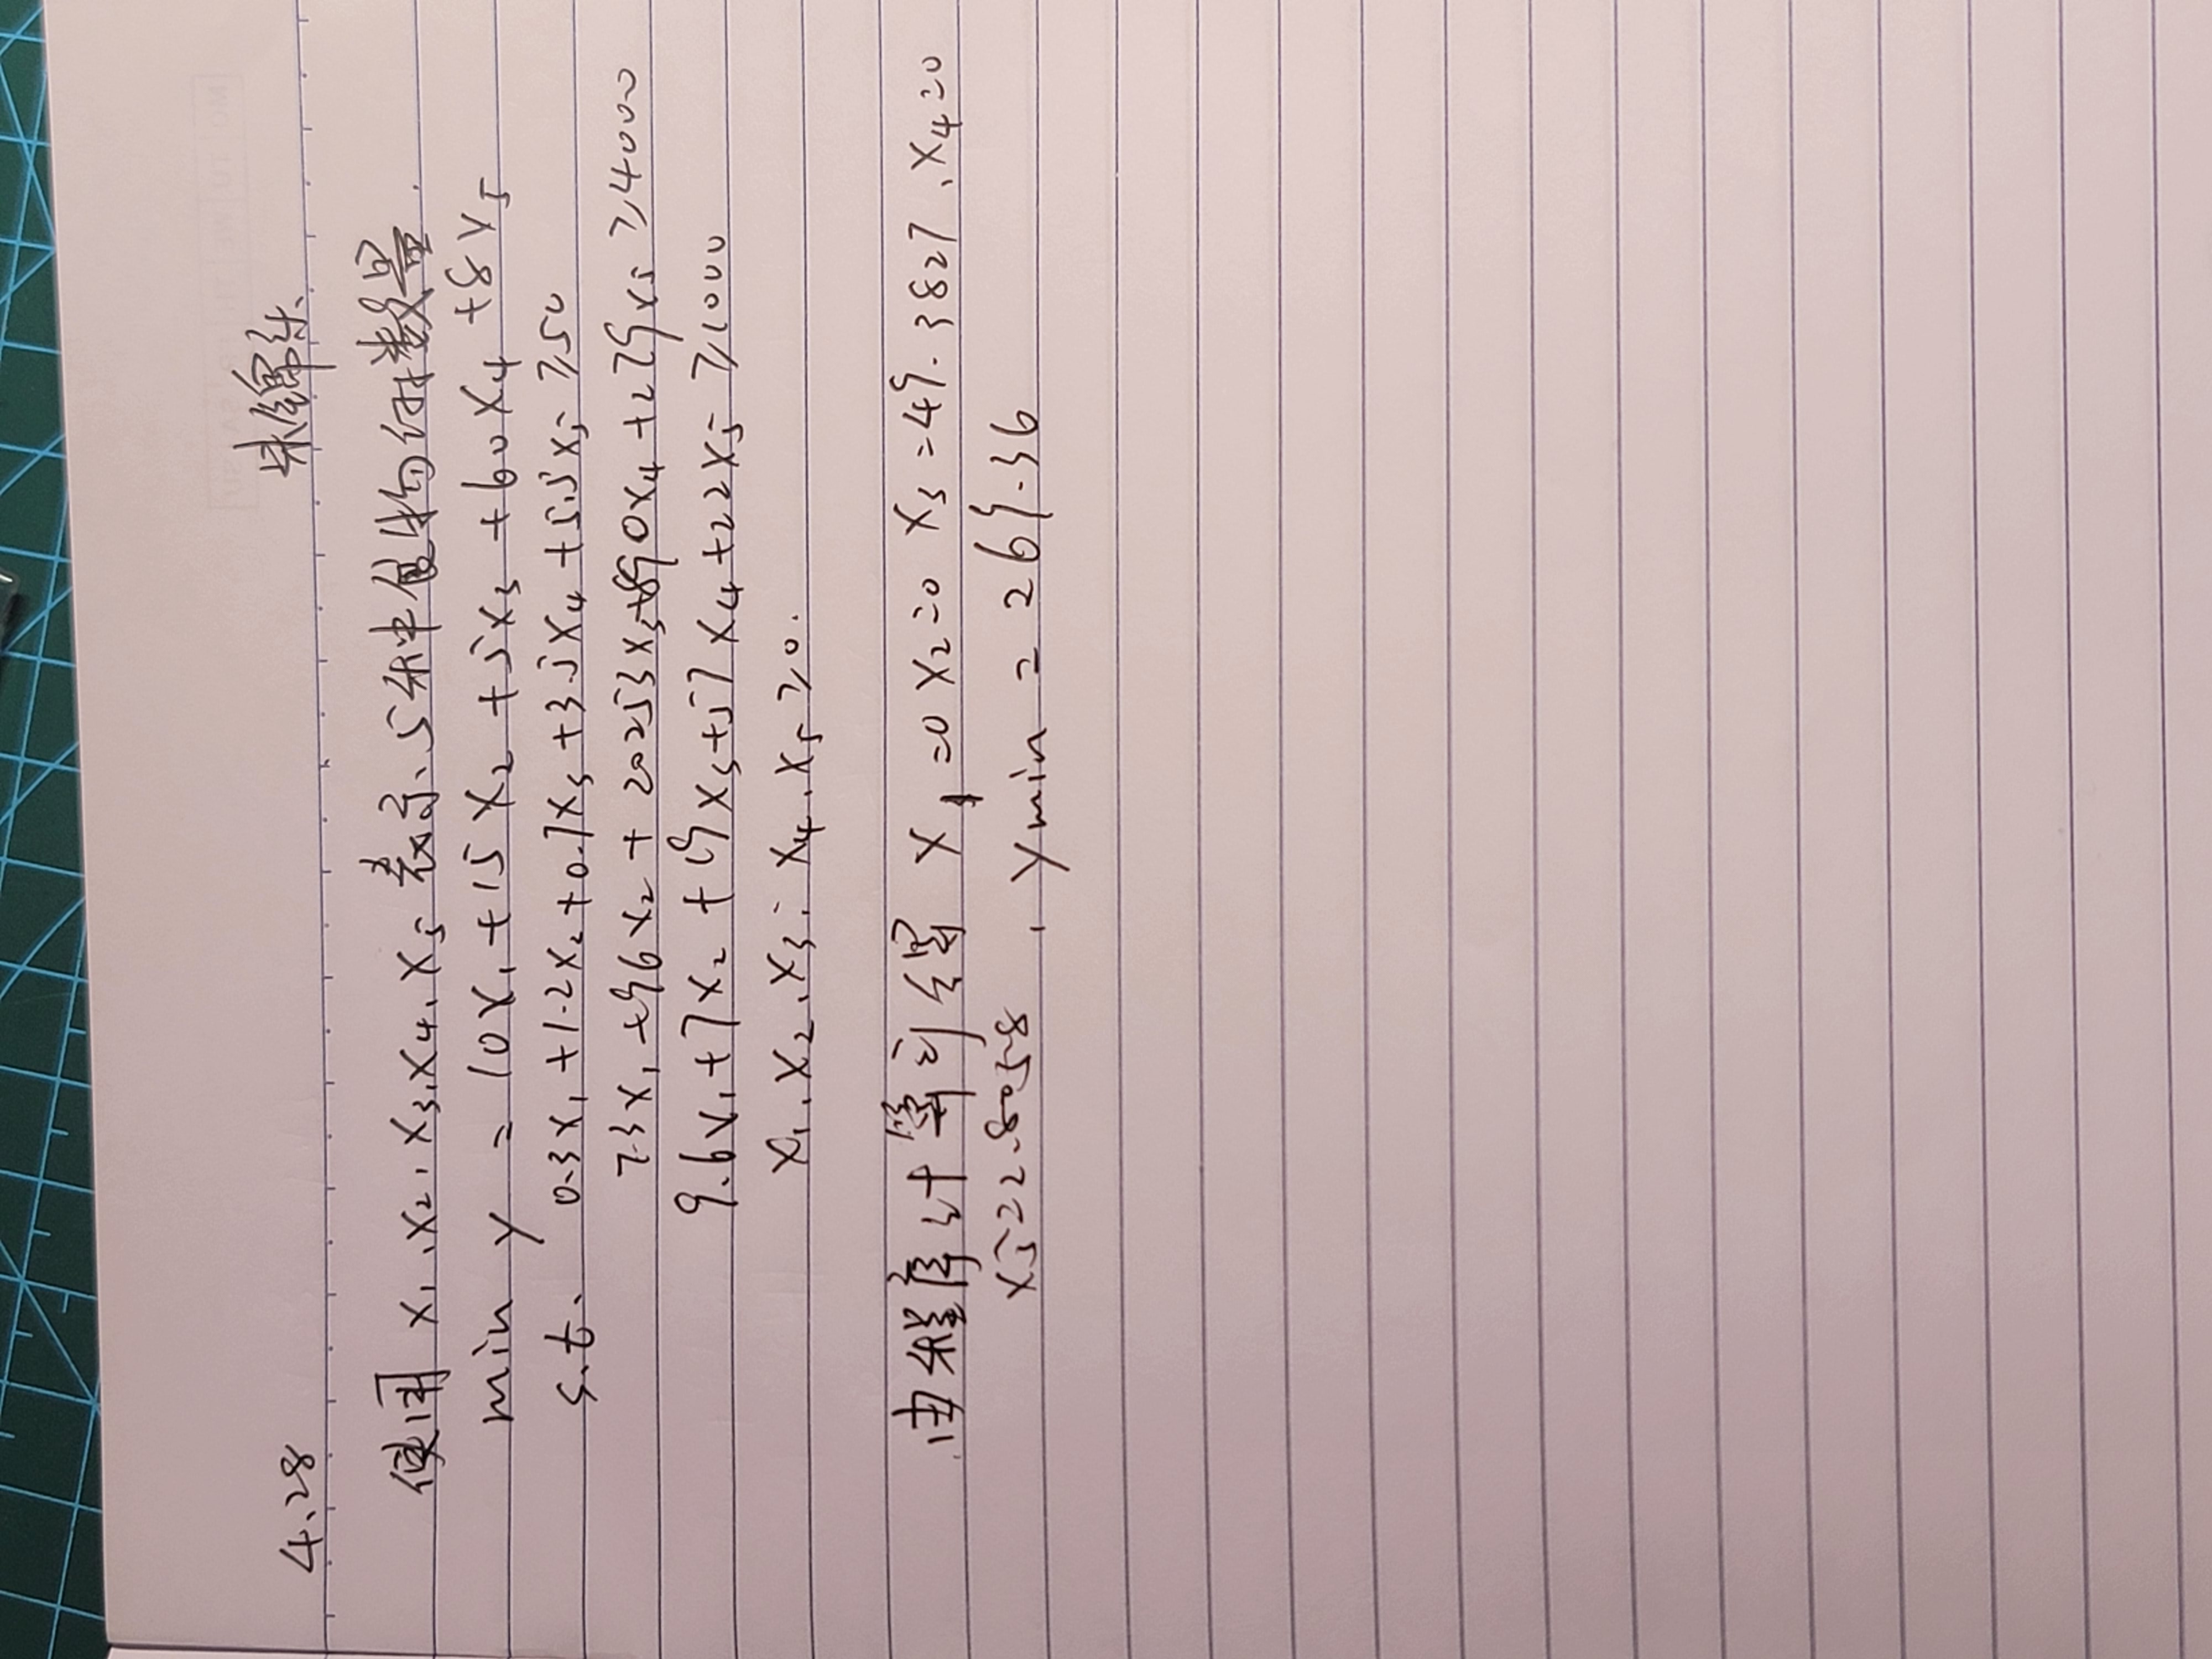 4.28 朱锦乐
使用 x₁、x₂、x₃、x₄、x₅ 表示、5种食物的数量.
min y = 10x₁+15x₂+5x₃+60x₄+8x₅
s.t. 0.3x₁+1.2x₂+0.7x₃+3.5x₄+5.5x₅≥50
73x₁+96x₂+20253x₃+890x₄+279x₅≥4000
9.6x₁+7x₂+19x₃+57x₄+22x₅≥1000
x₁、x₂、x₃、x₄、x₅≥0.
由程序计算可得 x₁=0 x₂=0 x₃=49.3827、x₄=0
x₅=2.8058, ymin = 269.36